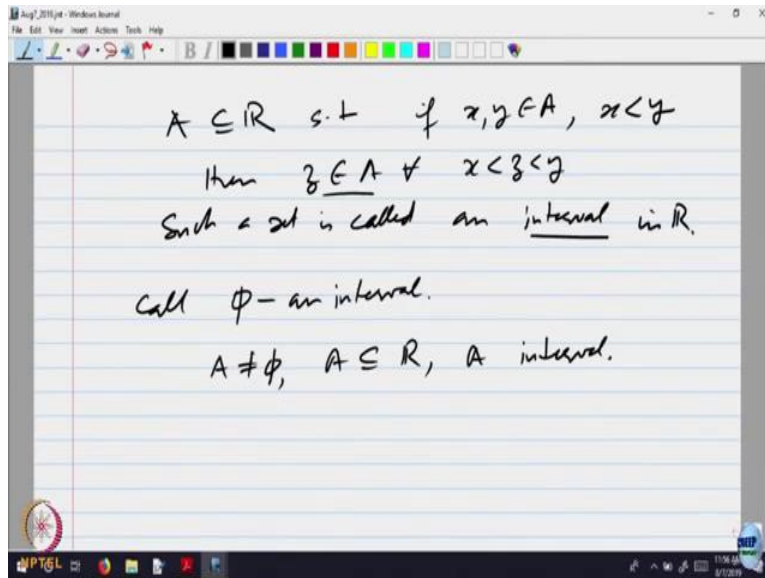 Aug7_2019.jnt - Windows Journal
File Edit View Insert Actions Tools Help
A ⊆ ℝ s.t if x, y ∈ A, x < y
then z ∈ A ∀ x < z < y
Such a set is called an interval in ℝ.
Call φ - an interval.
A ≠ φ, A ⊆ ℝ, A interval.
NPTEL
11:56 AM
8/7/2019